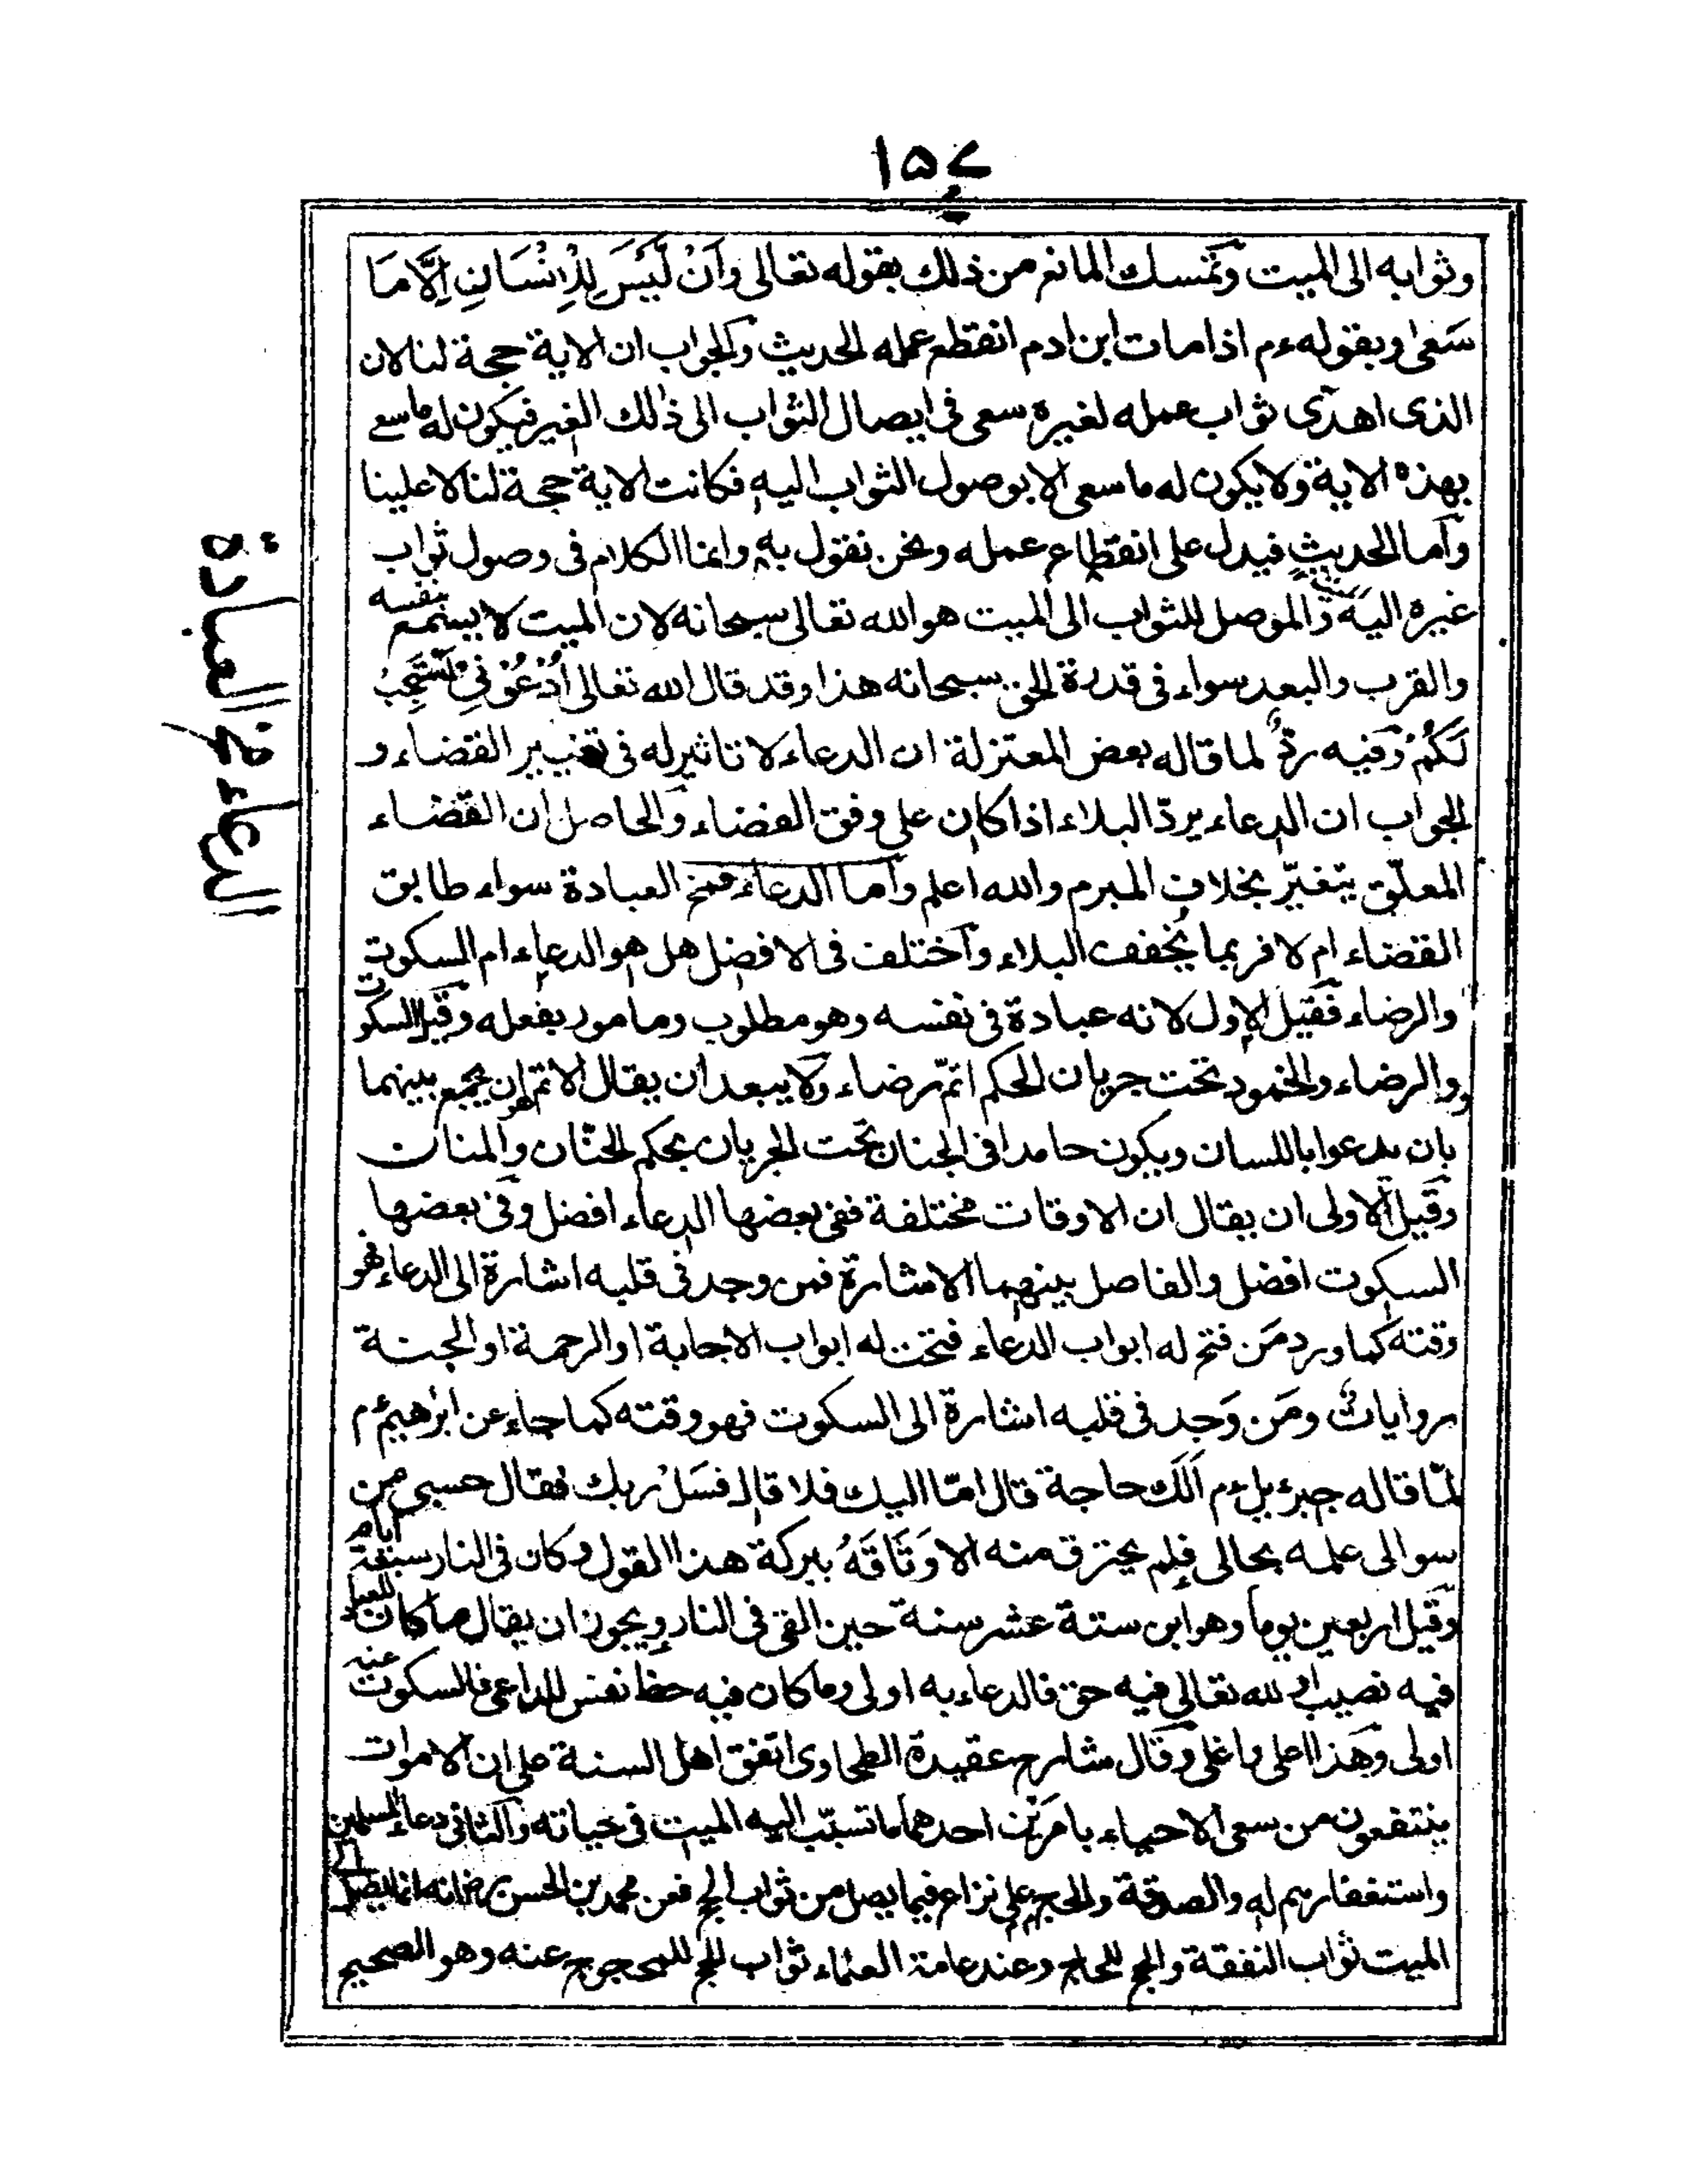 ١٥٧
وثوابه الى الميت وتمسك المانع من ذلك بقوله تعالى وَاَنْ لَّيْسَ لِلْاِنْسَانِ اِلَّا مَا
سَعٰى وبقوله ءم اذا مات ابن ادم انقطع عمله الحديث والجواب ان الاية حجة لنا لان
الذى اهدى ثواب عمله لغيره سعى فى ايصال الثواب الى ذلك الغير فيكون له ما سعى
بهذه الاية ولا يكون له ما سعى الا بوصول الثواب اليه فكانت الاية حجة لنا لا علينا
وأما الحديث فيدل على انقطاع عمله ونحن نقول به وانما الكلام فى وصول ثواب
غيره اليه والموصل للثواب الى الميت هو الله تعالى سبحانه لان الميت لا يسمع بنفسه
والقرب والبعد سواء فى قدرة الحق سبحانه هذا وقد قال الله تعالى اُدْعُوْنِىْ اَسْتَجِبْ
لَكُمْ وفيه ردٌّ لما قاله بعض المعتزلة ان الدعاء لا تاثير له فى تغيير القضاء و
الجواب ان الدعاء يردّ البلاء اذا كان على وفق القضاء والحاصل ان القضاء
المعلّق يتغيّر بخلاف المبرم والله اعلم وأما الدعاء فمخ العبادة سواء طابق
القضاء ام لا فربما يُخفف البلاء وأختلف فى الافضل هل هو الدعاء ام السكوت
والرضاء فقيل الاول لانه عبادة فى نفسه وهو مطلوب ومامور بفعله وقيل السكوت
والرضاء والخمود تحت جريان الحكم اتمّ رضاء ولا يبعد ان يقال الاتم هو ان يجمع بينهما
بان يدعوا باللسان ويكون حامدا فى الجنان تحت الجريان بحكم الحنّان والمنان
وقيل الاولى ان يقال ان الاوقات مختلفة ففى بعضها الدعاء افضل وفى بعضها
السكوت افضل والفاصل بينهما الاشارة فمن وجد فى قلبه اشارة الى الدعاء فهو
وقته كما ورد مَن فتح له ابواب الدعاء فتحت له ابواب الاجابة او الرحمة او الجنة
رواياتٌ ومَن وَجد فى قلبه اشارة الى السكوت فهو وقته كما جاء عن ابرٰهيم ءم
لمّا قال له جبرءيل ءم اَلَك حاجة قال امّا اليك فلا قال فسَلْ ربك فقال حسبى من
سوالى علمه بحالى فلم يحترق منه الا وَثَاقَهُ ببركة هذا القول وكان فى النار سبعة ايام
وقيل اربعين يوماً وهو ابن ستة عشر سنة حين القى فى النار ويجوز ان يقال ما كان للعباد
فيه نصيب او لله تعالى فيه حق فالدعاء به اولى وما كان فيه حظ نفس للداعى فالسكوت عنه
اولى وهَذا اعلى واغلى وقال شارح عقيدة الطحاوى اتفق اهل السنة على ان الاموات
ينتفعون من سعى الاحياء بامرَين احدهما ما تسبّب اليه الميت فى حياته والثانى دعاء المسلمين
واستغفارهم له والصدقة والحج على نزاع فيما يصل من ثواب الحج فعن محمد بن الحسن رح انه انما يصل الى
الميت ثواب النفقة والحج للحاج وعند عامة العلماء ثواب الحج للمحجوج عنه وهو الصحيح
الدعاء مخ العبادة